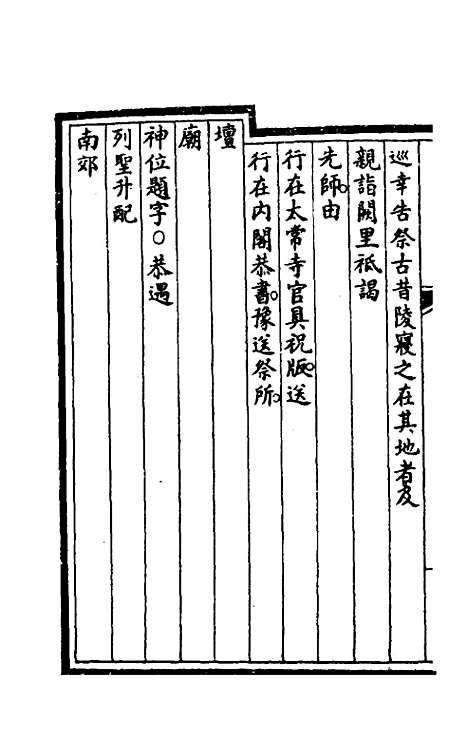 巡幸告祭古昔陵寢之在其地者及
親詣闕里祗謁
先師。由
行在太常寺官具祝版。送
行在内閣恭書。豫送祭所。
壇
廟
神位題字○恭遇
列聖升配
南郊